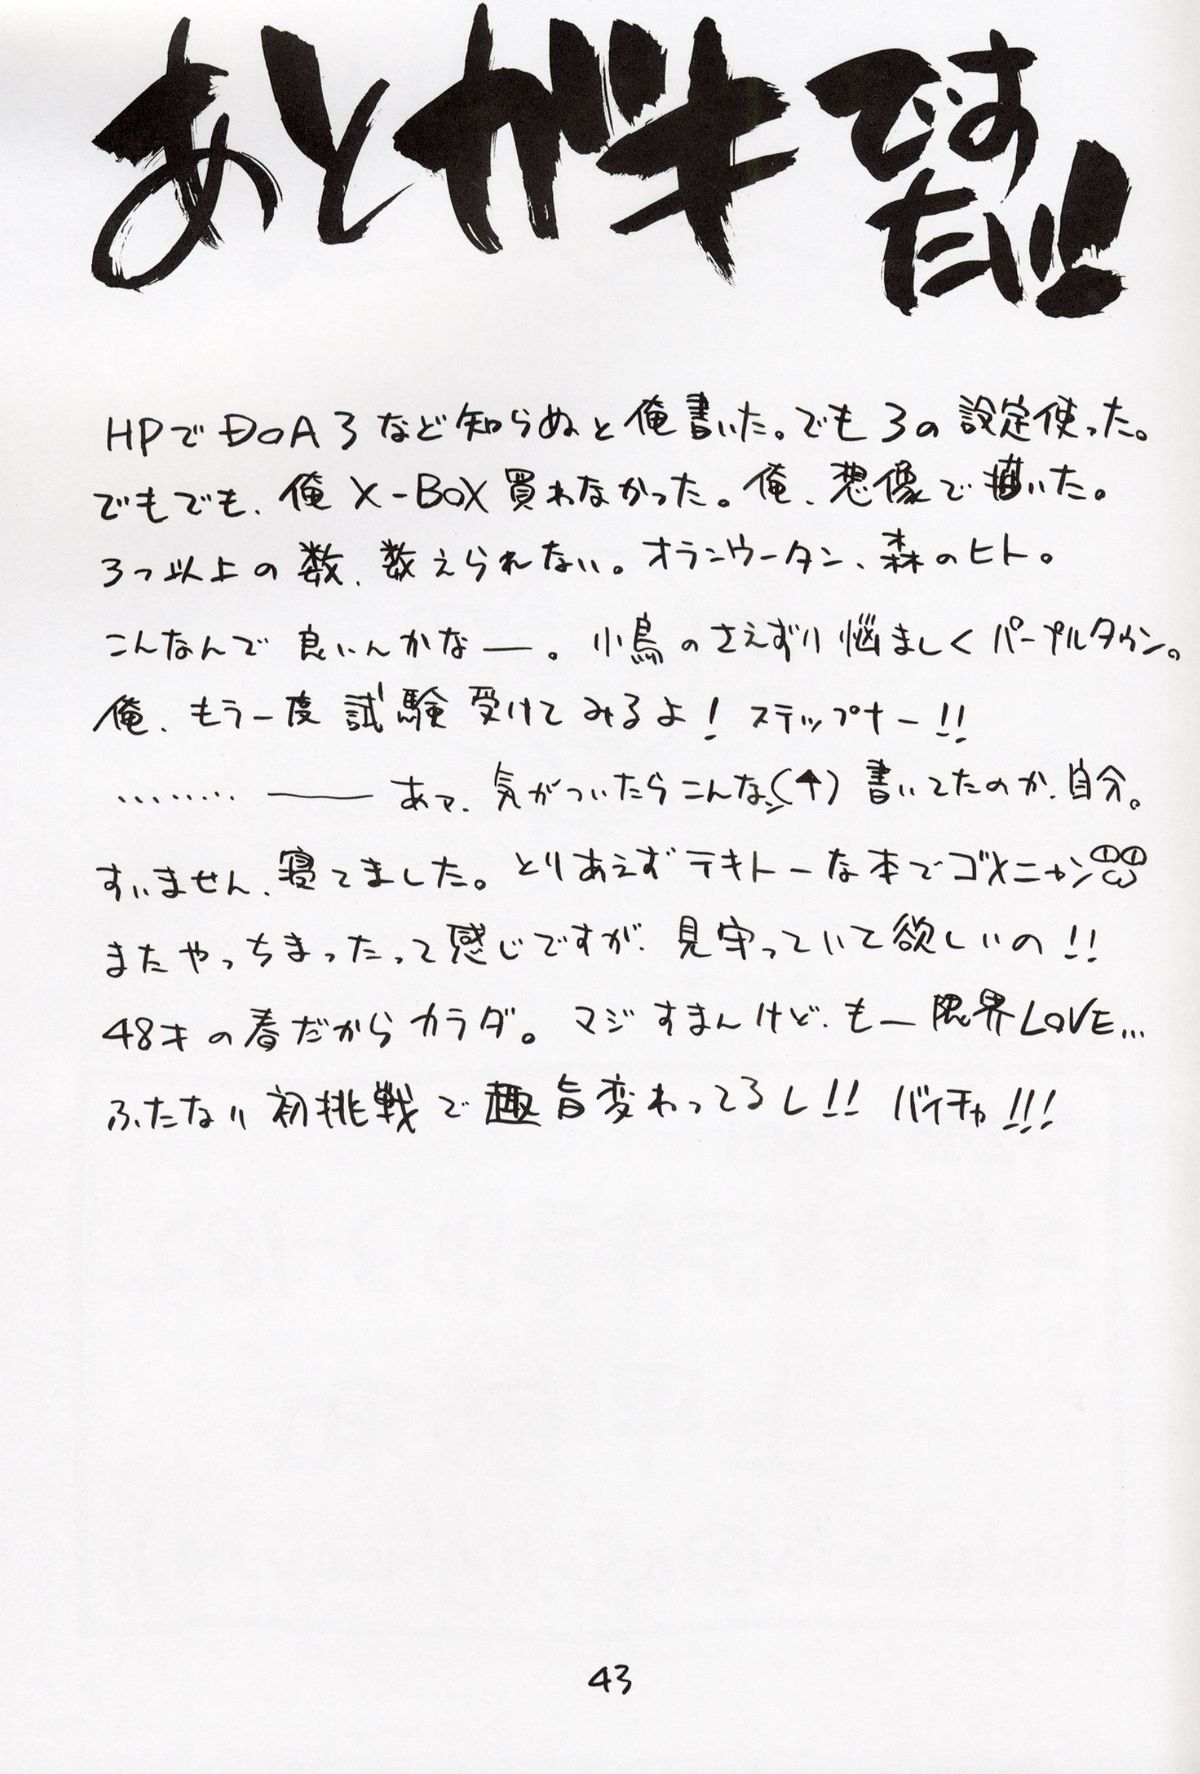 あとがキですたい!!
HPでDOA3など知らぬと俺書いた。でも3の設定使った。
でもでも、俺X-BOX買わなかった。俺、想像で描いた。
3つ以上の数、数えられない。オランウータン、森のヒト。
こんなんで良いんかなー。小鳥のさえずり悩ましくパープルタウン。
俺、もう一度試験受けてみるよ!ステップナー!!
‥‥‥‥ ――― あァ、気がついたらこんな(↑)書いてたのか、自分。
すいません、寝てました。とりあえずテキトーな本でゴメニャン
またやっちまったって感じですが、見守っていて欲しいの!!
48才の春だからカラダ。マジすまんけど、もー限界LOVE…
ふたなり初挑戦で趣旨変わってるし!! バイチャ!!!
43